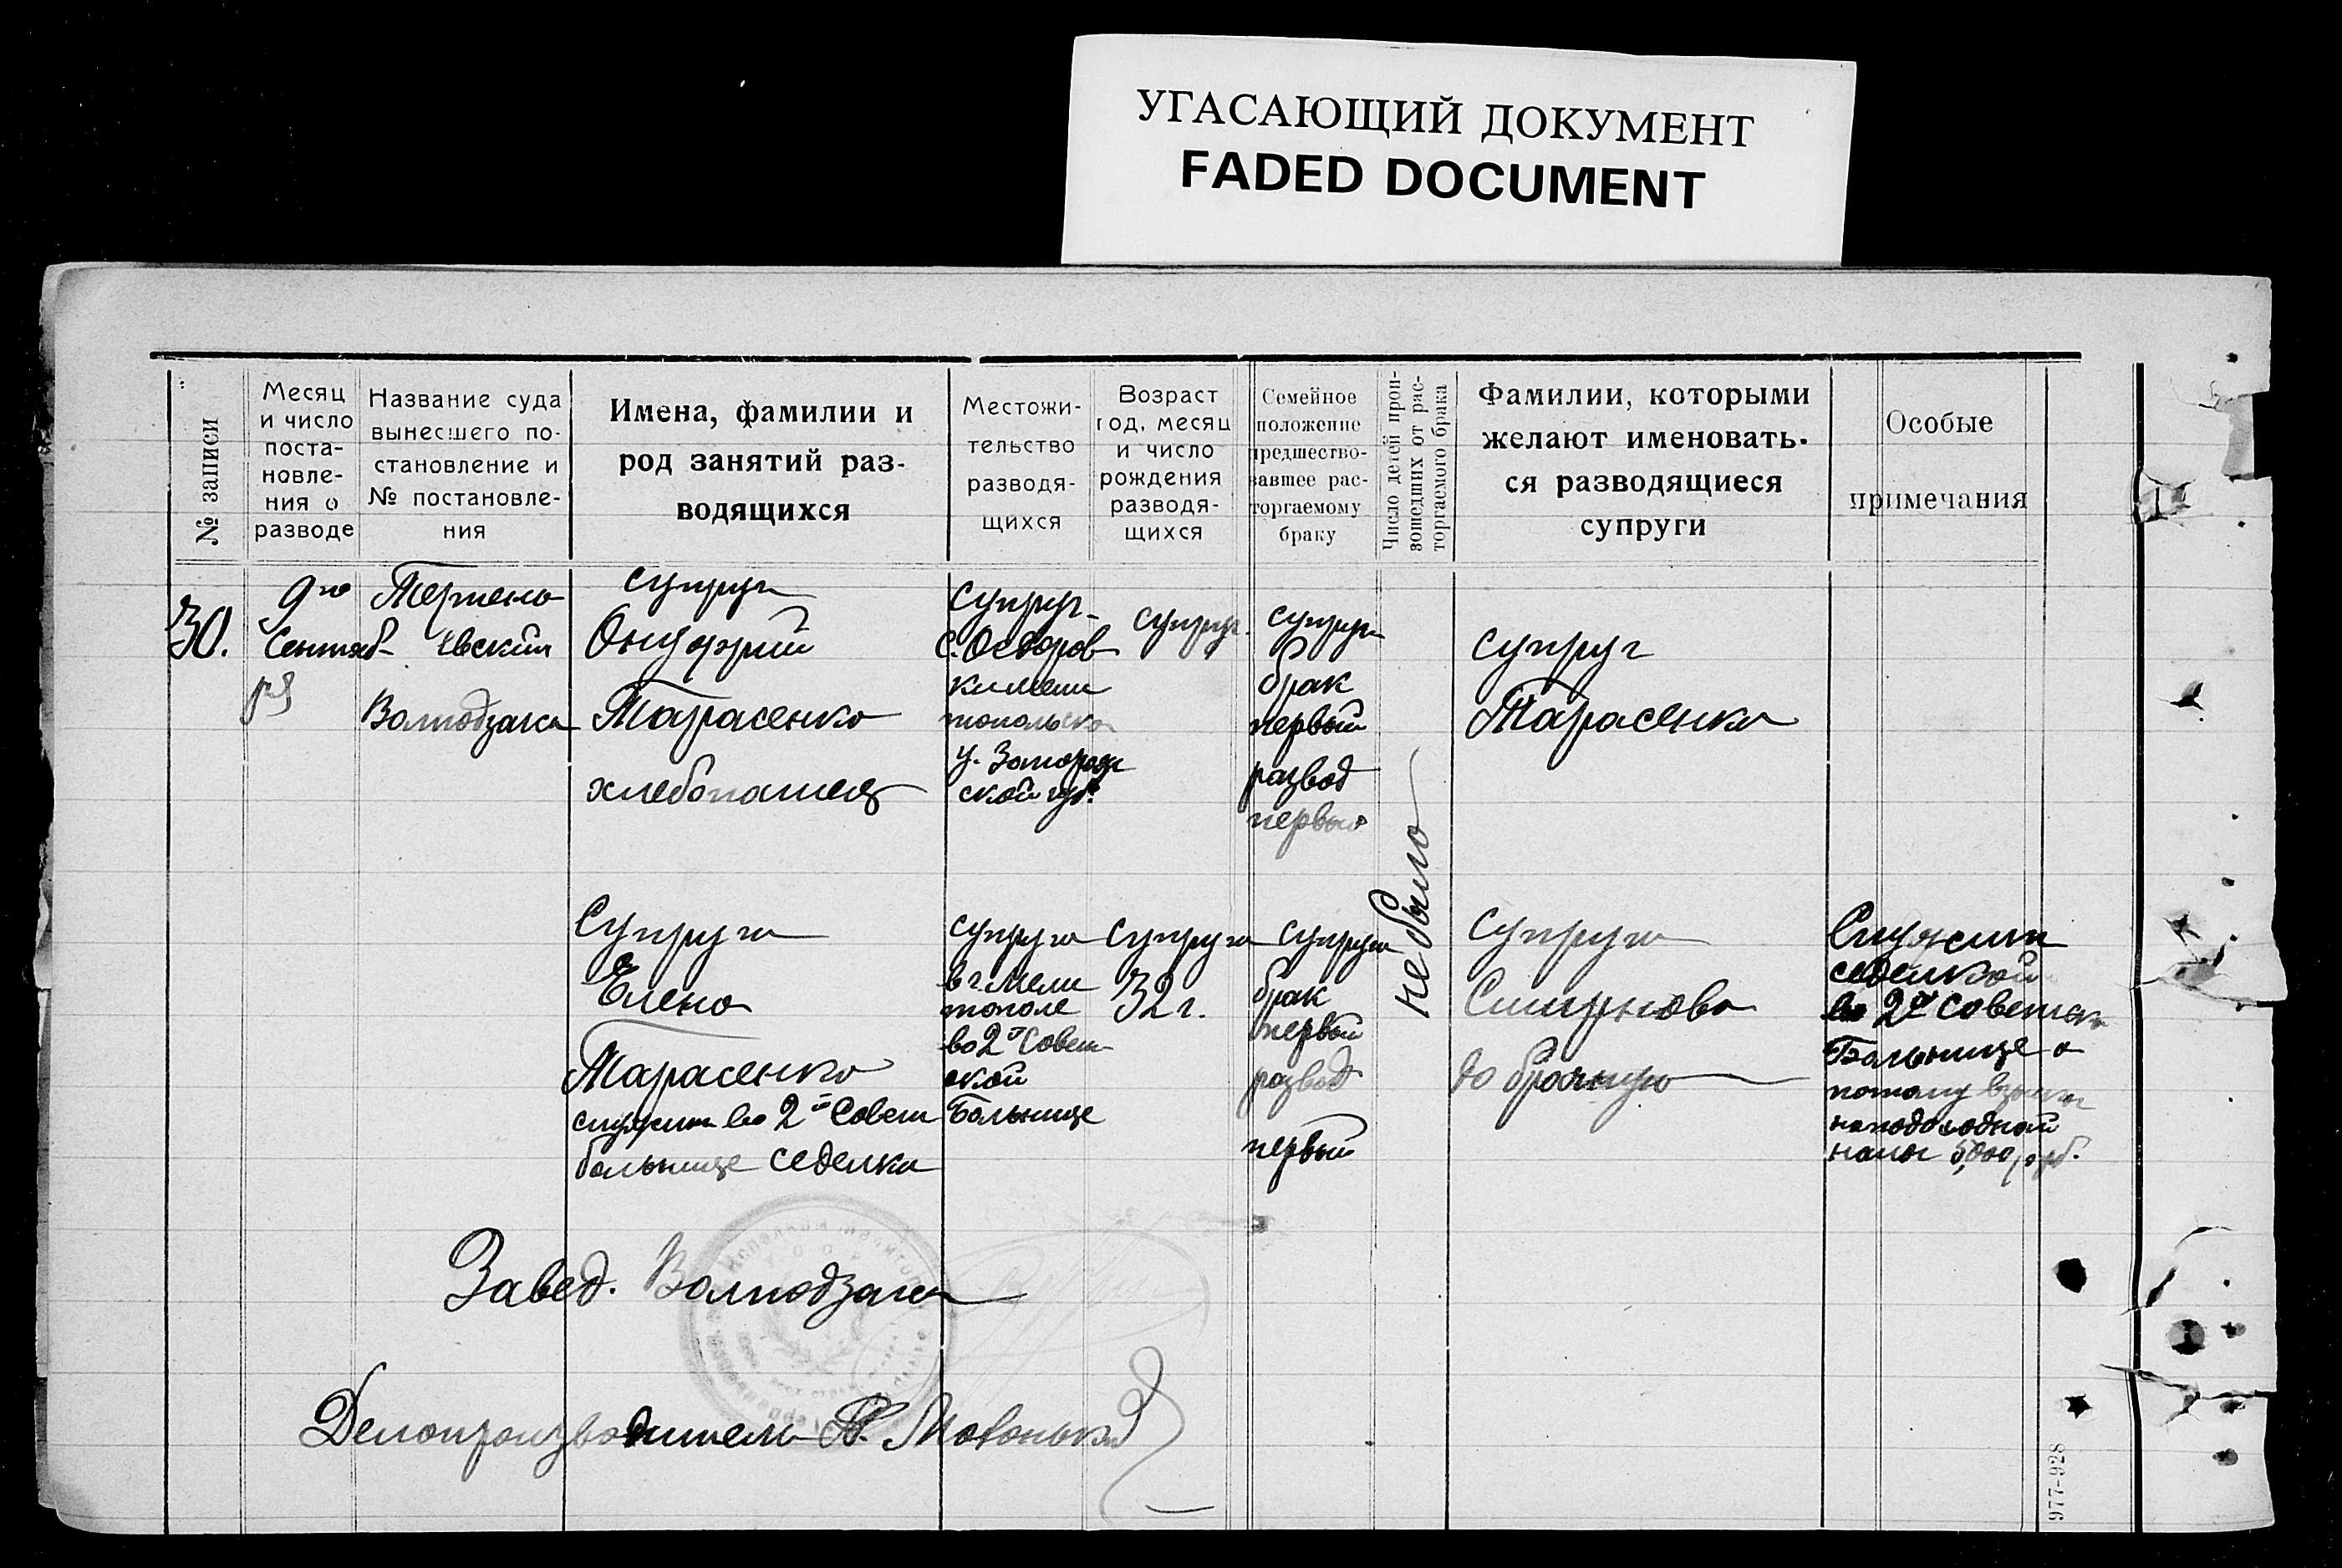 УГАСАЮЩИЙ ДОКУМЕНТ
FADED DOCUMENT
№ записи
Месяц
и число
поста-
новле-
ния о
разводе
Название суда
вынесшего по-
становление и
№ постановле-
ния
Имена, фамилии и
род занятий раз-
водящихся
Местожи-
тельство
разводя-
щихся
Возраст
год, месяц
и число
рождения
разводя-
щихся
Семейное
положение
предшество-
вавшее рас-
торгаемому
браку
Число детей прои-
зошедших от рас-
торгаемого брака
Фамилии, которыми
желают именовать-
ся разводящиеся
супруги
Особые
примечания
30.
9го
Сентяб-
ря
Терпень
евский
Волподзагса
супруг
Онуфрий
Тарасенко
хлебопашец
супруг
тополь
у. Запорож
ской губ.
супруг
супруг
брак
первый
развод
первый
супруг
Тарасенко
Супруга
Елена
Тарасенко
служит во 2й Совет
больнице седелка
супруга
в г. Мели
тополе
во 2й Совет
ской
Больнице
супруга
32 г.
супруга
брак
первый
развод
первый
не было
супруга
Смирнова
до брачную
Служит
седелкой
во 2й Советск
Больнице а
потому взыскан
наподоходной
налог 5,000 руб.
Завед. Волподзагса
Делопроизводитель
977-928